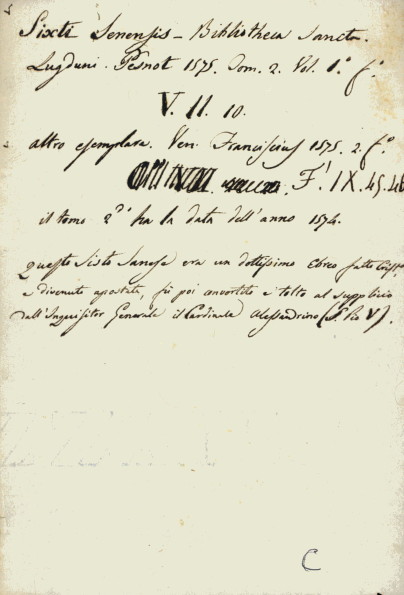 Sixti Senensis – Bibliotheca Sancta.
Lugduni. Pesnot 1575. Tom. 2. Vol. 1.° f.°
V. II. 10.
altro esemplare. Ven. Franciscius 1575. 2. f.°
F.' IX. 45. 46
il tomo 2.do ha la data dell'anno 1574.
Questo Sisto Sanese era un dottissimo Ebreo fatto
e divenuto apostata, fù poi convertito e tolto al supplicio
dall'Inquisitor Generale il Cardinale Alessandrino (S. Pio V).
C